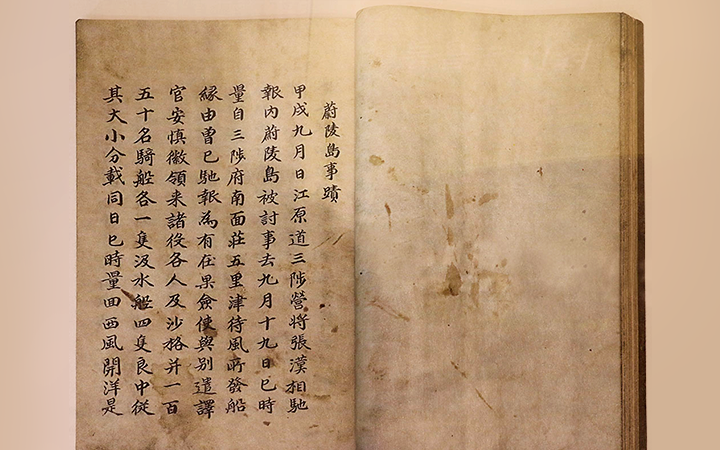 蔚陵島事蹟
甲戌九月日江原道三陟營將張漢相馳
報內蔚陵島被討事去九月十九日巳時
量自三陟府南面莊五里津待風所發船
緣由曾已馳報為有在果僉使與別遣譯
官安慎徽領來諸役各人及沙格并一百
五十名騎船各一隻汲水船四隻良中從
其大小分載同日巳時量回西風開洋是